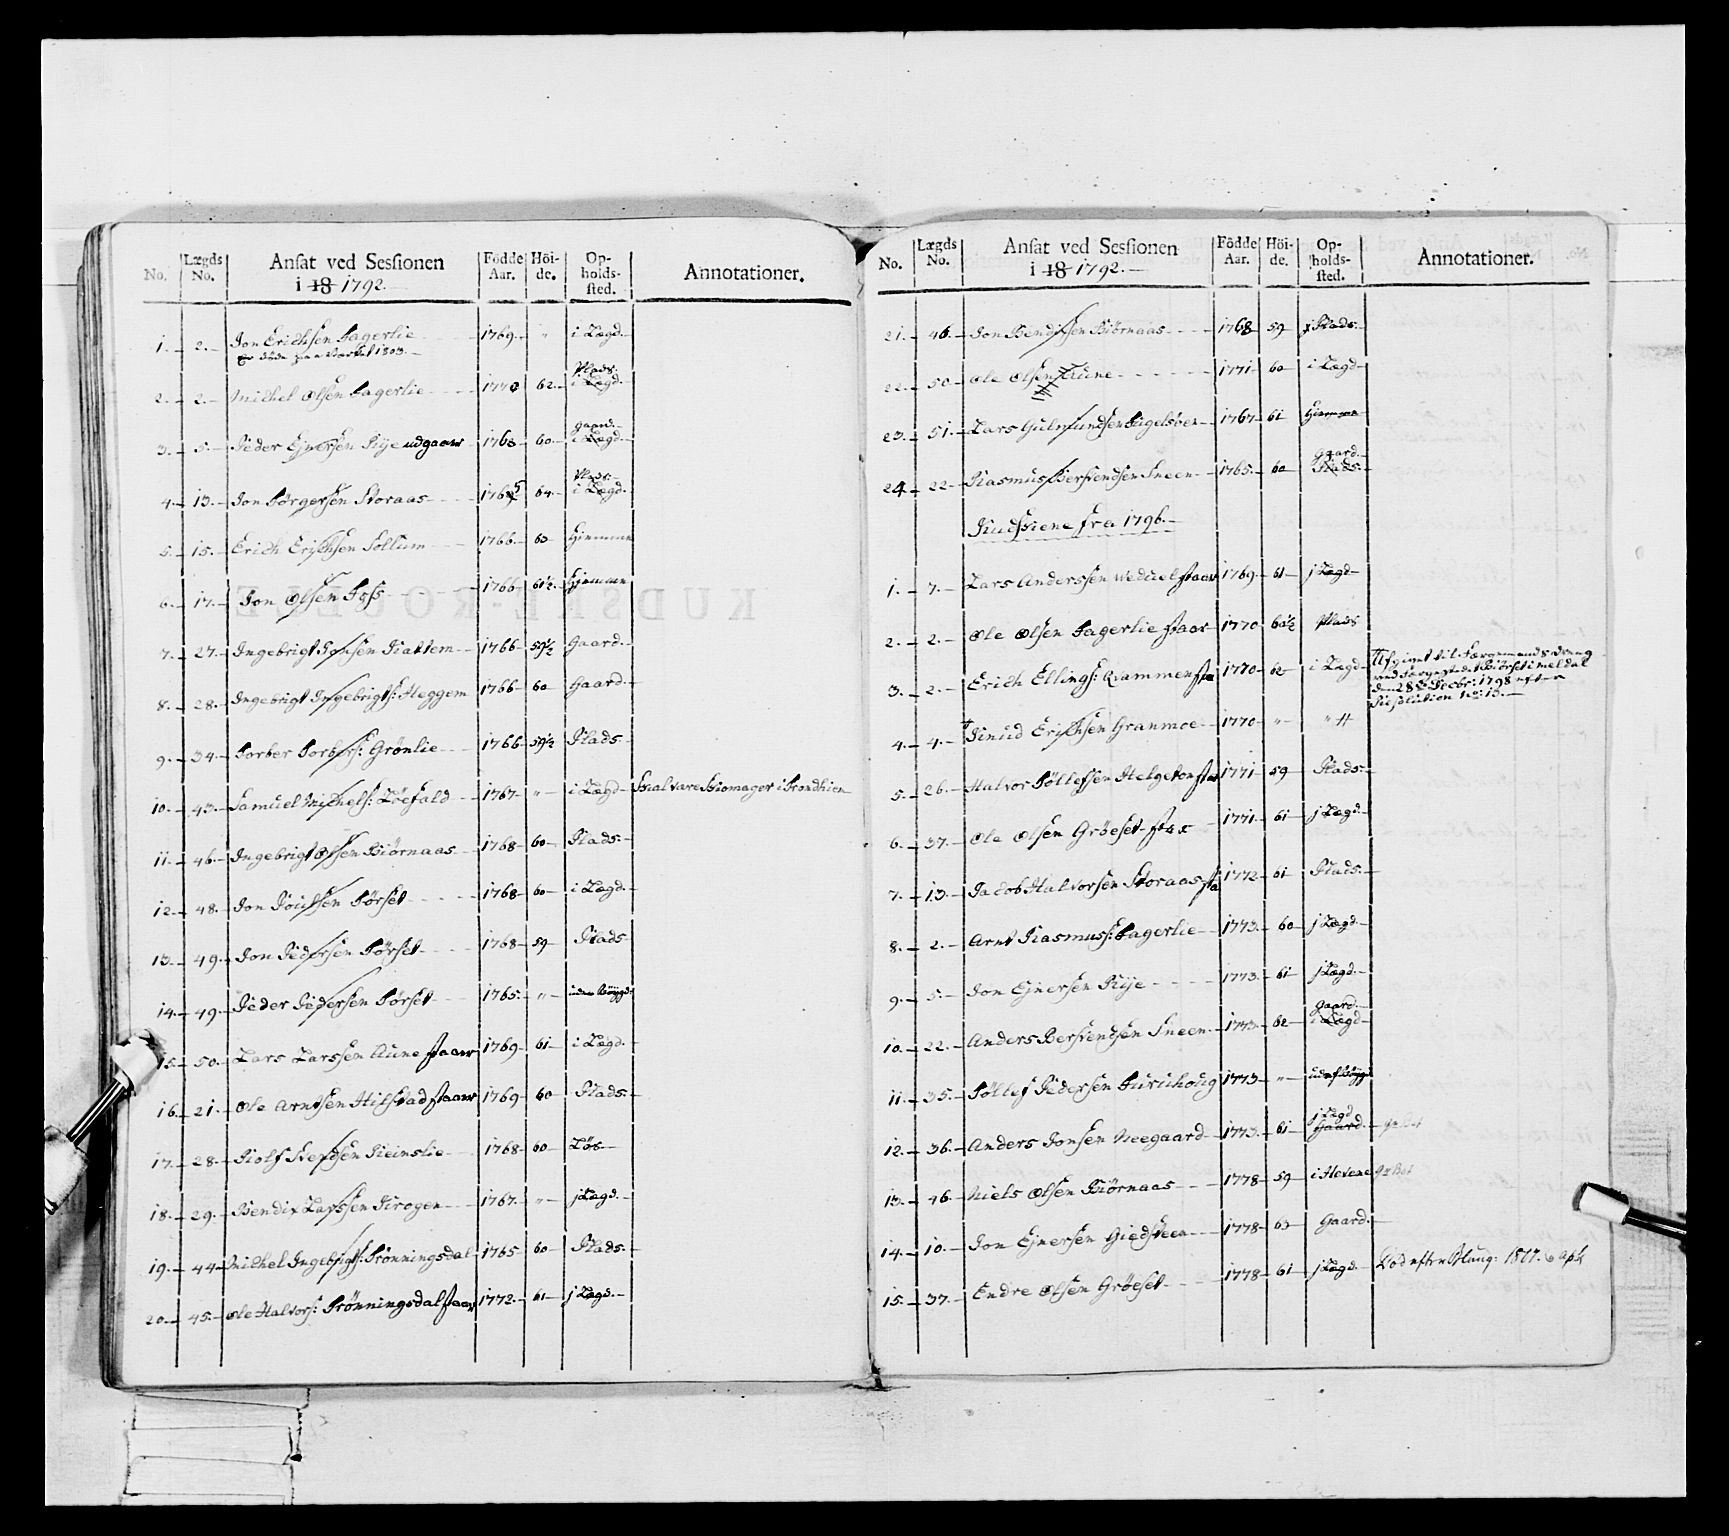 No. Lægds No. Ansat ved Sessionen i 18 1792. Födde Aar. Höi-de. Op-holds-sted. Annotationer.
1. 2. Jon Erichsen Fagerlie 1769. " i Lægd.
2. 2. Michel Olsen Fagerlie 1770 62. Plads. i Lægd.
3. 5. Peder Ejnersen Rye udgaaer 1768 60. gaard i Lægd.
4. 13. Jon Börgersen Storaas 1765 64. Plads. i Lægd.
5. 15. Erich Erichsen Sollum 1766. 63 Hiemme
6. 17. Jon Olsen 1766 61½. Hjemme
7. 27. Ingebrigt Jonsen Kattem 1766 59½ Gaard.
8. 28. Ingebrigt Ingebrigts: Heggem 1766 60 Gaard.
9. 34. Torber Torbers: Grönlie 1766 59½ Plads
10. 43. Samuel Michels: Löefald 1767. " i Lægd i Trondhiem
11. 46. Ingebrigt Olsen Biörnaas 1768 60 Plads.
12. 48. Jon Joensen Börset 1768 60 i Lægd.
13. 49. Jon Pedersen Börset 1768 59 Plads
14. 49. Peder Pedersen Börset 1765. " uden Böygd
15. 50. Lars Larssen Aune staaer 1769 61 i Lægd.
16. 21. Ole Arntsen Hilstad staaer 1769 60 Plads.
17. 28. Rolf Svendsen Reinslie 1768 60 Lös
18. 29. Bendix Larssen Krogen 1767. " j Lægd.
19. 44 Michel Ingebrigts: Brönningsdal 1765 60 Plads.
20. 45. Ole Halvors: Brönningsdal staaer 1772. 61 j Lægd.
No. Lægds No. Ansat ved Sessionen i 18 1792. Födde Aar. Höi-de. Op-holds-sted. Annotationer.
21. 46. Jon Bendixsen Biörnaas 1768 59 Plads.
22. 50. Ole Olsen Aune 1771 60 i Lægd
23. 51. Lars Gulmundsen Fugelsöen 1767 61 Hiemme
24. 22. Rasmus Bersvendsen Sneen 1765. 60 gaard. Plads.
Kudskene fra 1796.
1. 7. Lars Anderssen staaer 1769. 61 j Lægd
2. 2. Ole Olsen Fagerlie staaer 1770 60½ Plads
3. 2. Erich Ellings: Qvammen 1770 62 i Lægd Afgivet til Færgemands dreng
ved i Meldal
den 28de Decbr: 1798 efter
Resolution No: 13.
4. 4. Knud Erichsen Granmoe 1770 " "
5. 26. Halvor Tollefsen Helgeton 1771 59 Plads
6. 37. Ole Olsen Gröeset 1771. 61 j Lægd.
7. 13. Jacob Halvorsen Storaas 1772 61 Plads.
8. 2. Arnt Rasmuss: Fagerlie 1773. 60 j Lægd.
9. 5. Jon Ejnersen Rye 1773. 61 j Lægd.
10. 22. Anders Bersvendsen Sneen 1773. 62 gaard. i Lægd
11. 35. Tollef Pedersen 1773 " udaf Böygd
12. 36. Anders Jonsen Neegaard 1773. 61 j Lægd Gaard.
13. 46. Niels Olsen Biörnaas 1778 59 i Hevene
14. 10. Jon Ejnersen Giedsteen 1778 63 Gaard.
15. 37. Endre Olsen Gröeset 1778 61 j Lægd.